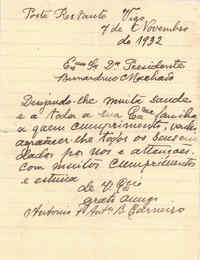 Poste Restante Vigo
7 de Novembro
de 1932
Exmo Sr Dr. Presidente
Bernardino Machado
Desejando-lhe muita saude
e a toda a sua Exma familia
a quem cumprimento, venho
agradecer-lhe todos os seus
dados por nos e attenções.
Com muitos cumprimentos
e estima
de V. Excia
grato amigo
Antonio B. Carneiro